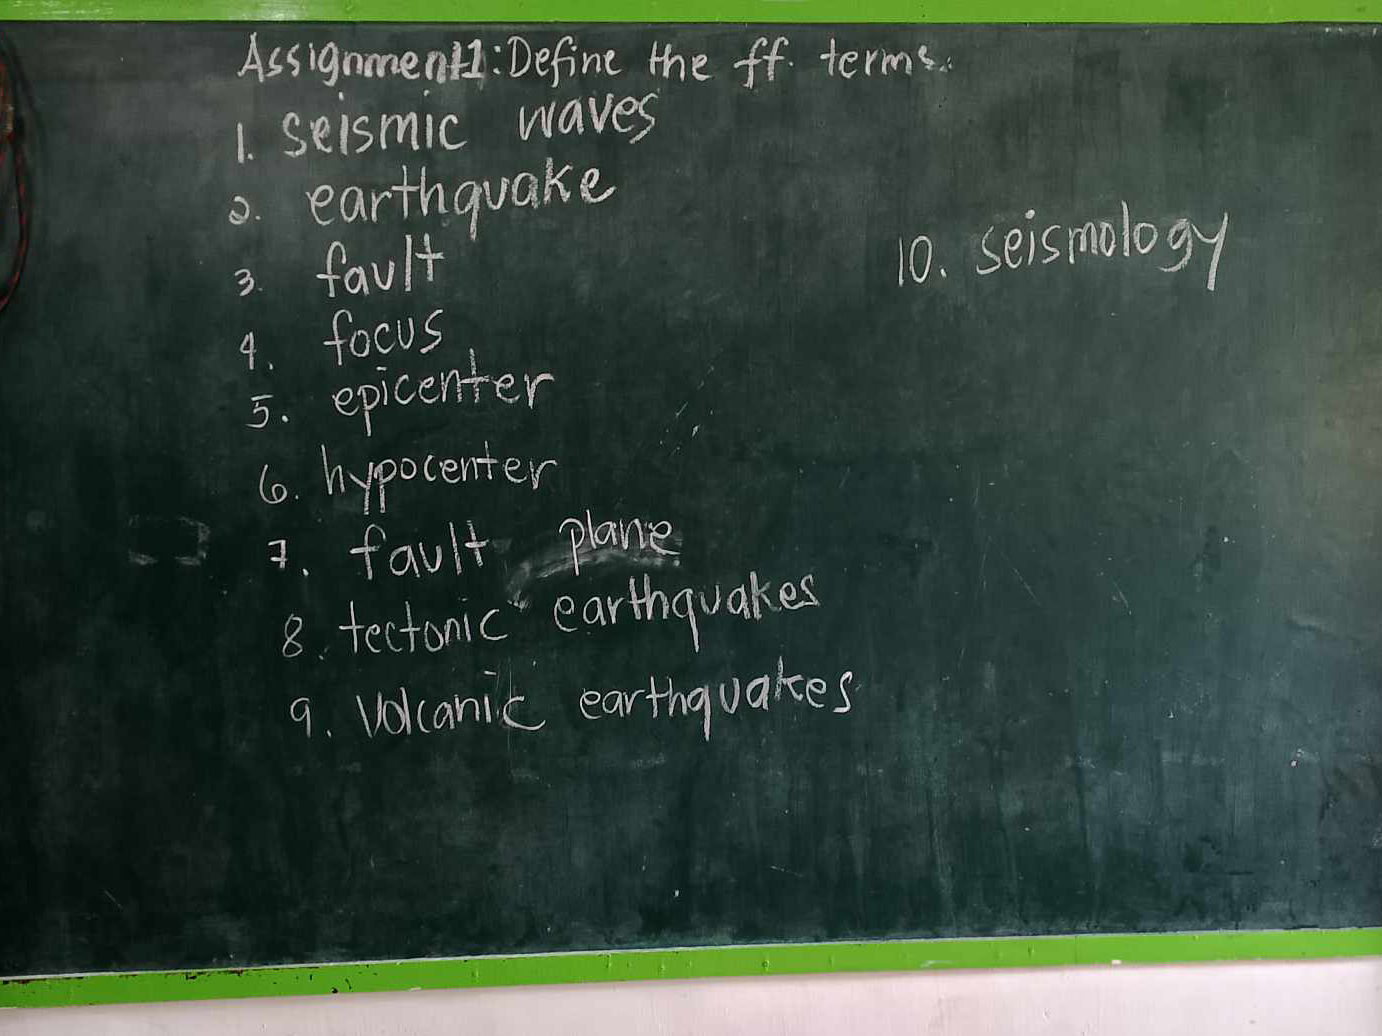 Assignment1: Define the ff. terms.
1. seismic waves
2. earthquake
3. fault
4. focus
5. epicenter
6. hypocenter
7. fault plane
8. tectonic earthquakes
9. Volcanic earthquakes
10. seismology